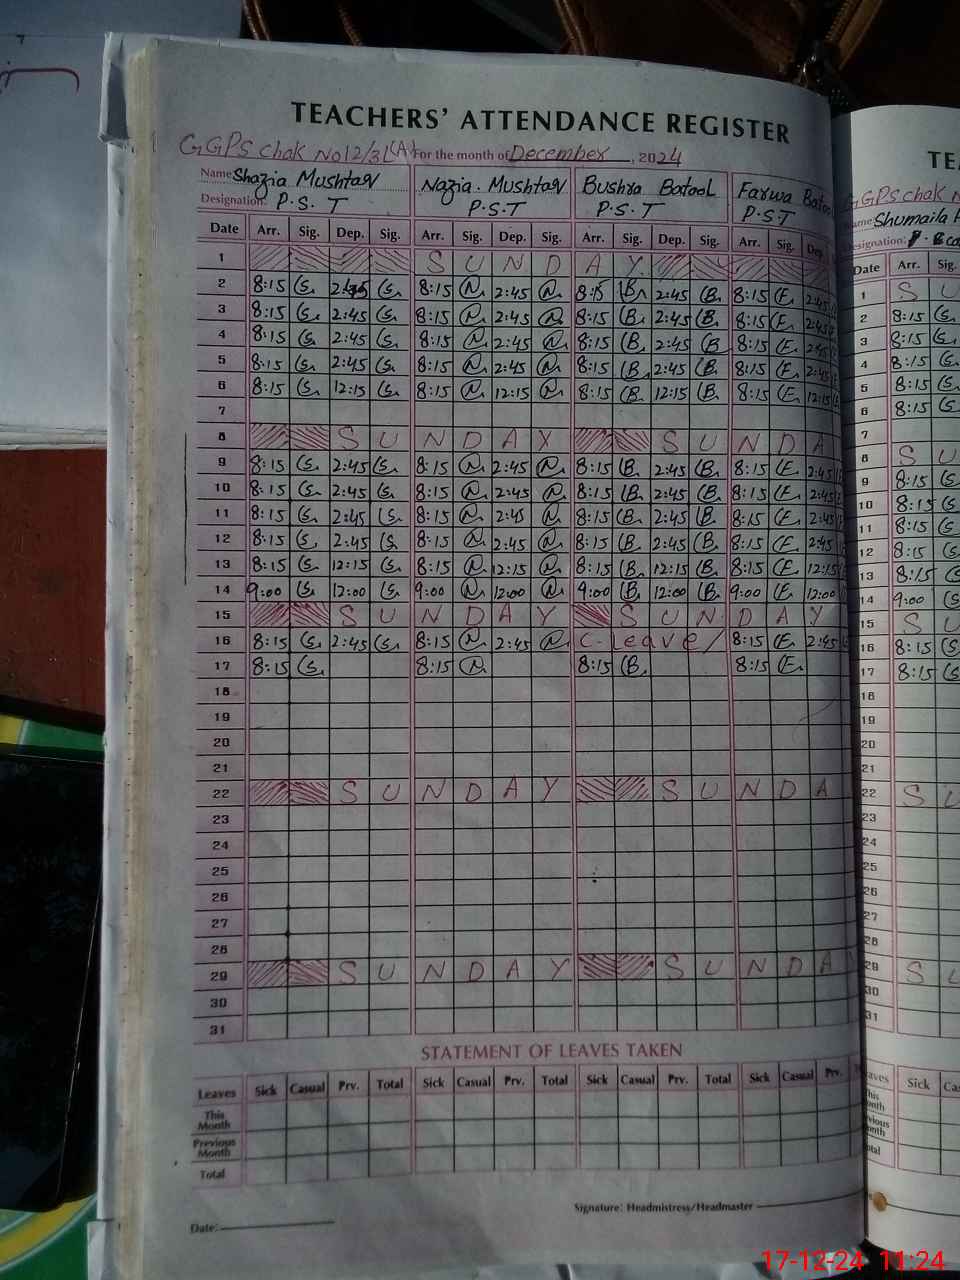 TEACHERS' ATTENDANCE REGISTER
GGPS chak No 12/3L(A) For the month of December, 2024
Name Shazia Mushtaq Nazia. Mushtaq Bushra Batool Farwa
Designation: P.S.T P.S.T P.S.T P.S.T
Date Arr. Sig. Dep. Sig. Arr. Sig. Dep. Sig. Arr. Sig. Dep. Sig. Arr. Sig. Dep.
1 S U N D A Y
2 8:15 S. 2:45 S. 8:15 N. 2:45 N. 8:15 B. 2:45 B. 8:15 F. 2:45
3 8:15 S. 2:45 S. 8:15 N. 2:45 N. 8:15 B. 2:45 B. 8:15 F. 2:45
4 8:15 S. 2:45 S. 8:15 N. 2:45 N. 8:15 B. 2:45 B. 8:15 F. 2:45
5 8:15 S. 2:45 S. 8:15 N. 2:45 N. 8:15 B. 2:45 B. 8:15 F. 2:45
6 8:15 S. 12:15 S. 8:15 N. 12:15 N. 8:15 B. 12:15 B. 8:15 F. 12:15
7
8 S U N D A Y S U N D A
9 8:15 S. 2:45 S. 8:15 N. 2:45 N. 8:15 B. 2:45 B. 8:15 F. 2:45
10 8:15 S. 2:45 S. 8:15 N. 2:45 N. 8:15 B. 2:45 B. 8:15 F. 2:45
11 8:15 S. 2:45 S. 8:15 N. 2:45 N. 8:15 B. 2:45 B. 8:15 F. 2:45
12 8:15 S. 2:45 S. 8:15 N. 2:45 N. 8:15 B. 2:45 B. 8:15 F. 2:45
13 8:15 S. 12:15 S. 8:15 N. 12:15 N. 8:15 B. 12:15 B. 8:15 F. 12:15
14 9:00 S. 12:00 S. 9:00 N. 12:00 N. 9:00 B. 12:00 B. 9:00 F. 12:00
15 S U N D A Y S U N D A Y
16 8:15 S. 2:45 S. 8:15 N. 2:45 N. C.leave/ 8:15 F. 2:45
17 8:15 S. 8:15 N. 8:15 B. 8:15 F.
18
19
20
21
22 S U N D A Y S U N D A
23
24
25
26
27
28
29 S U N D A Y S U N D A
30
31
STATEMENT OF LEAVES TAKEN
Leaves Sick Casual Prv. Total Sick Casual Prv. Total Sick Casual Prv. Total Sick Casual Prv.
This Month
Previous Month
Total
Date: Signature: Headmistress/Headmaster
GGPS chak
Name: Shumaila
Designation:
Date Arr. Sig.
1 S U
2 8:15 S.
3 8:15 S.
4 8:15 S.
5 8:15 S.
6 8:15 S.
7
8 S U
9 8:15 S.
10 8:15 S.
11 8:15 S.
12 8:15 S.
13 8:15 S.
14 9:00 S.
15 S U
16 8:15 S.
17 8:15 S.
18
19
20
21
22 S U
23
24
25
26
27
28
29 S U
30
31
Sick
17-12-24 11:24